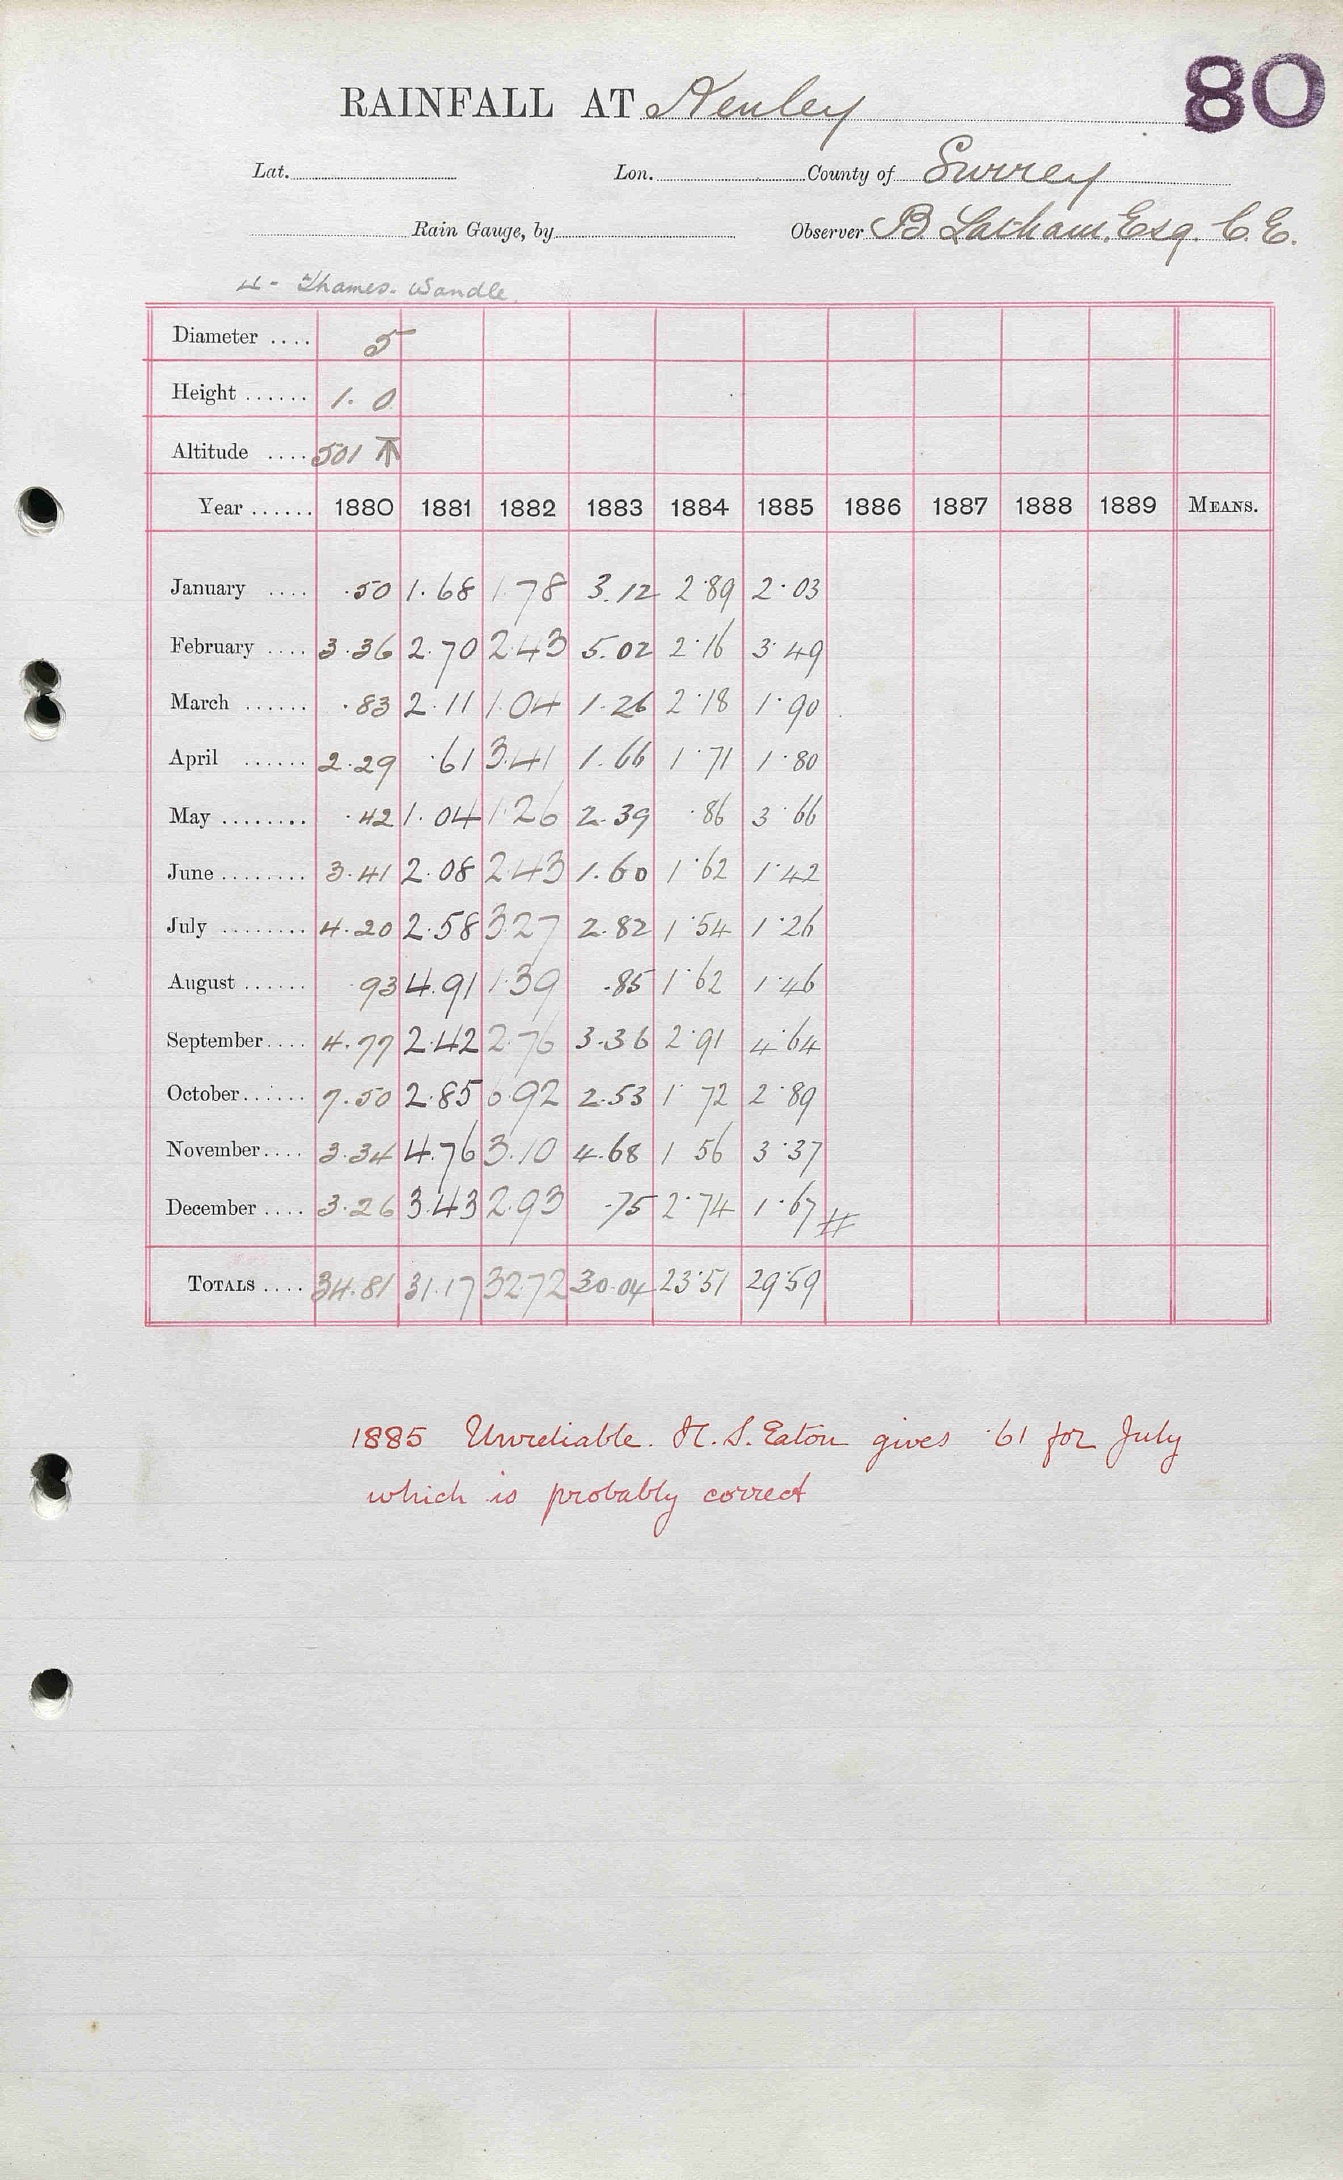 80
RAINFALL AT Kenley
Lat. Lon. County of Surrey
Rain Gauge, by Observer B. Latham, Esq. C.E.
4- Thames- Wandle
Diameter .... 5
Height ...... 1. 0
Altitude .... 501
Year ...... 1880 1881 1882 1883 1884 1885 1886 1887 1888 1889 MEANS.
January .... .50 1.68 1.78 3.12 2.89 2.03
February .... 3.36 2.70 2.43 5.02 2.16 3.49
March ...... .83 2.11 1.04 1.26 2.18 1.90
April ...... 2.29 .61 3.41 1.66 1.71 1.80
May ........ .42 1.04 1.26 2.39 .86 3.66
June ........ 3.41 2.08 2.43 1.60 1.62 1.42
July ........ 4.20 2.58 3.27 2.82 1.54 1.26
August ...... .93 4.91 1.39 .85 1.62 1.46
September .... 4.77 2.42 2.76 3.36 2.91 4.64
October ...... 7.50 2.85 6.92 2.53 1.72 2.89
November .... 3.34 4.76 3.10 4.68 1 56 3.37
December .... 3.26 3.43 2.93 .75 2.74 1.67 #
TOTALS .... 34.81 31.17 32.72 30.04 23.51 29.59
1885 Unreliable. H. S. Eaton gives .61 for July
which is probably correct